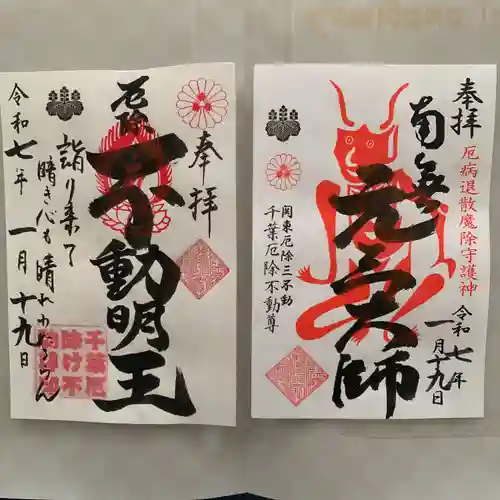 奉拝
厄病退散魔除守護神
南無
元三大師
関東厄除三不動
千葉厄除不動尊
令和七年
一月十九日
奉拝
厄除
不動明王
詣り来て
暗き心も晴れわたらん
令和七年
一月十九日
千葉厄
除け不